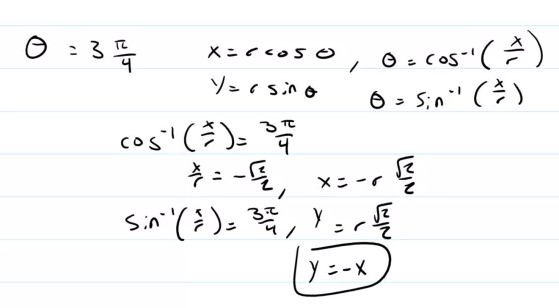 θ = 3 π/4    x = r cos θ , θ = cos⁻¹ (x/r)
y = r sin θ    θ = sin⁻¹ (x/r)
cos⁻¹ (x/r) = 3π/4
x/r = -√2/2 , x = -r √2/2
sin⁻¹ (x/r) = 3π/4 , y = r √2/2
y = -x